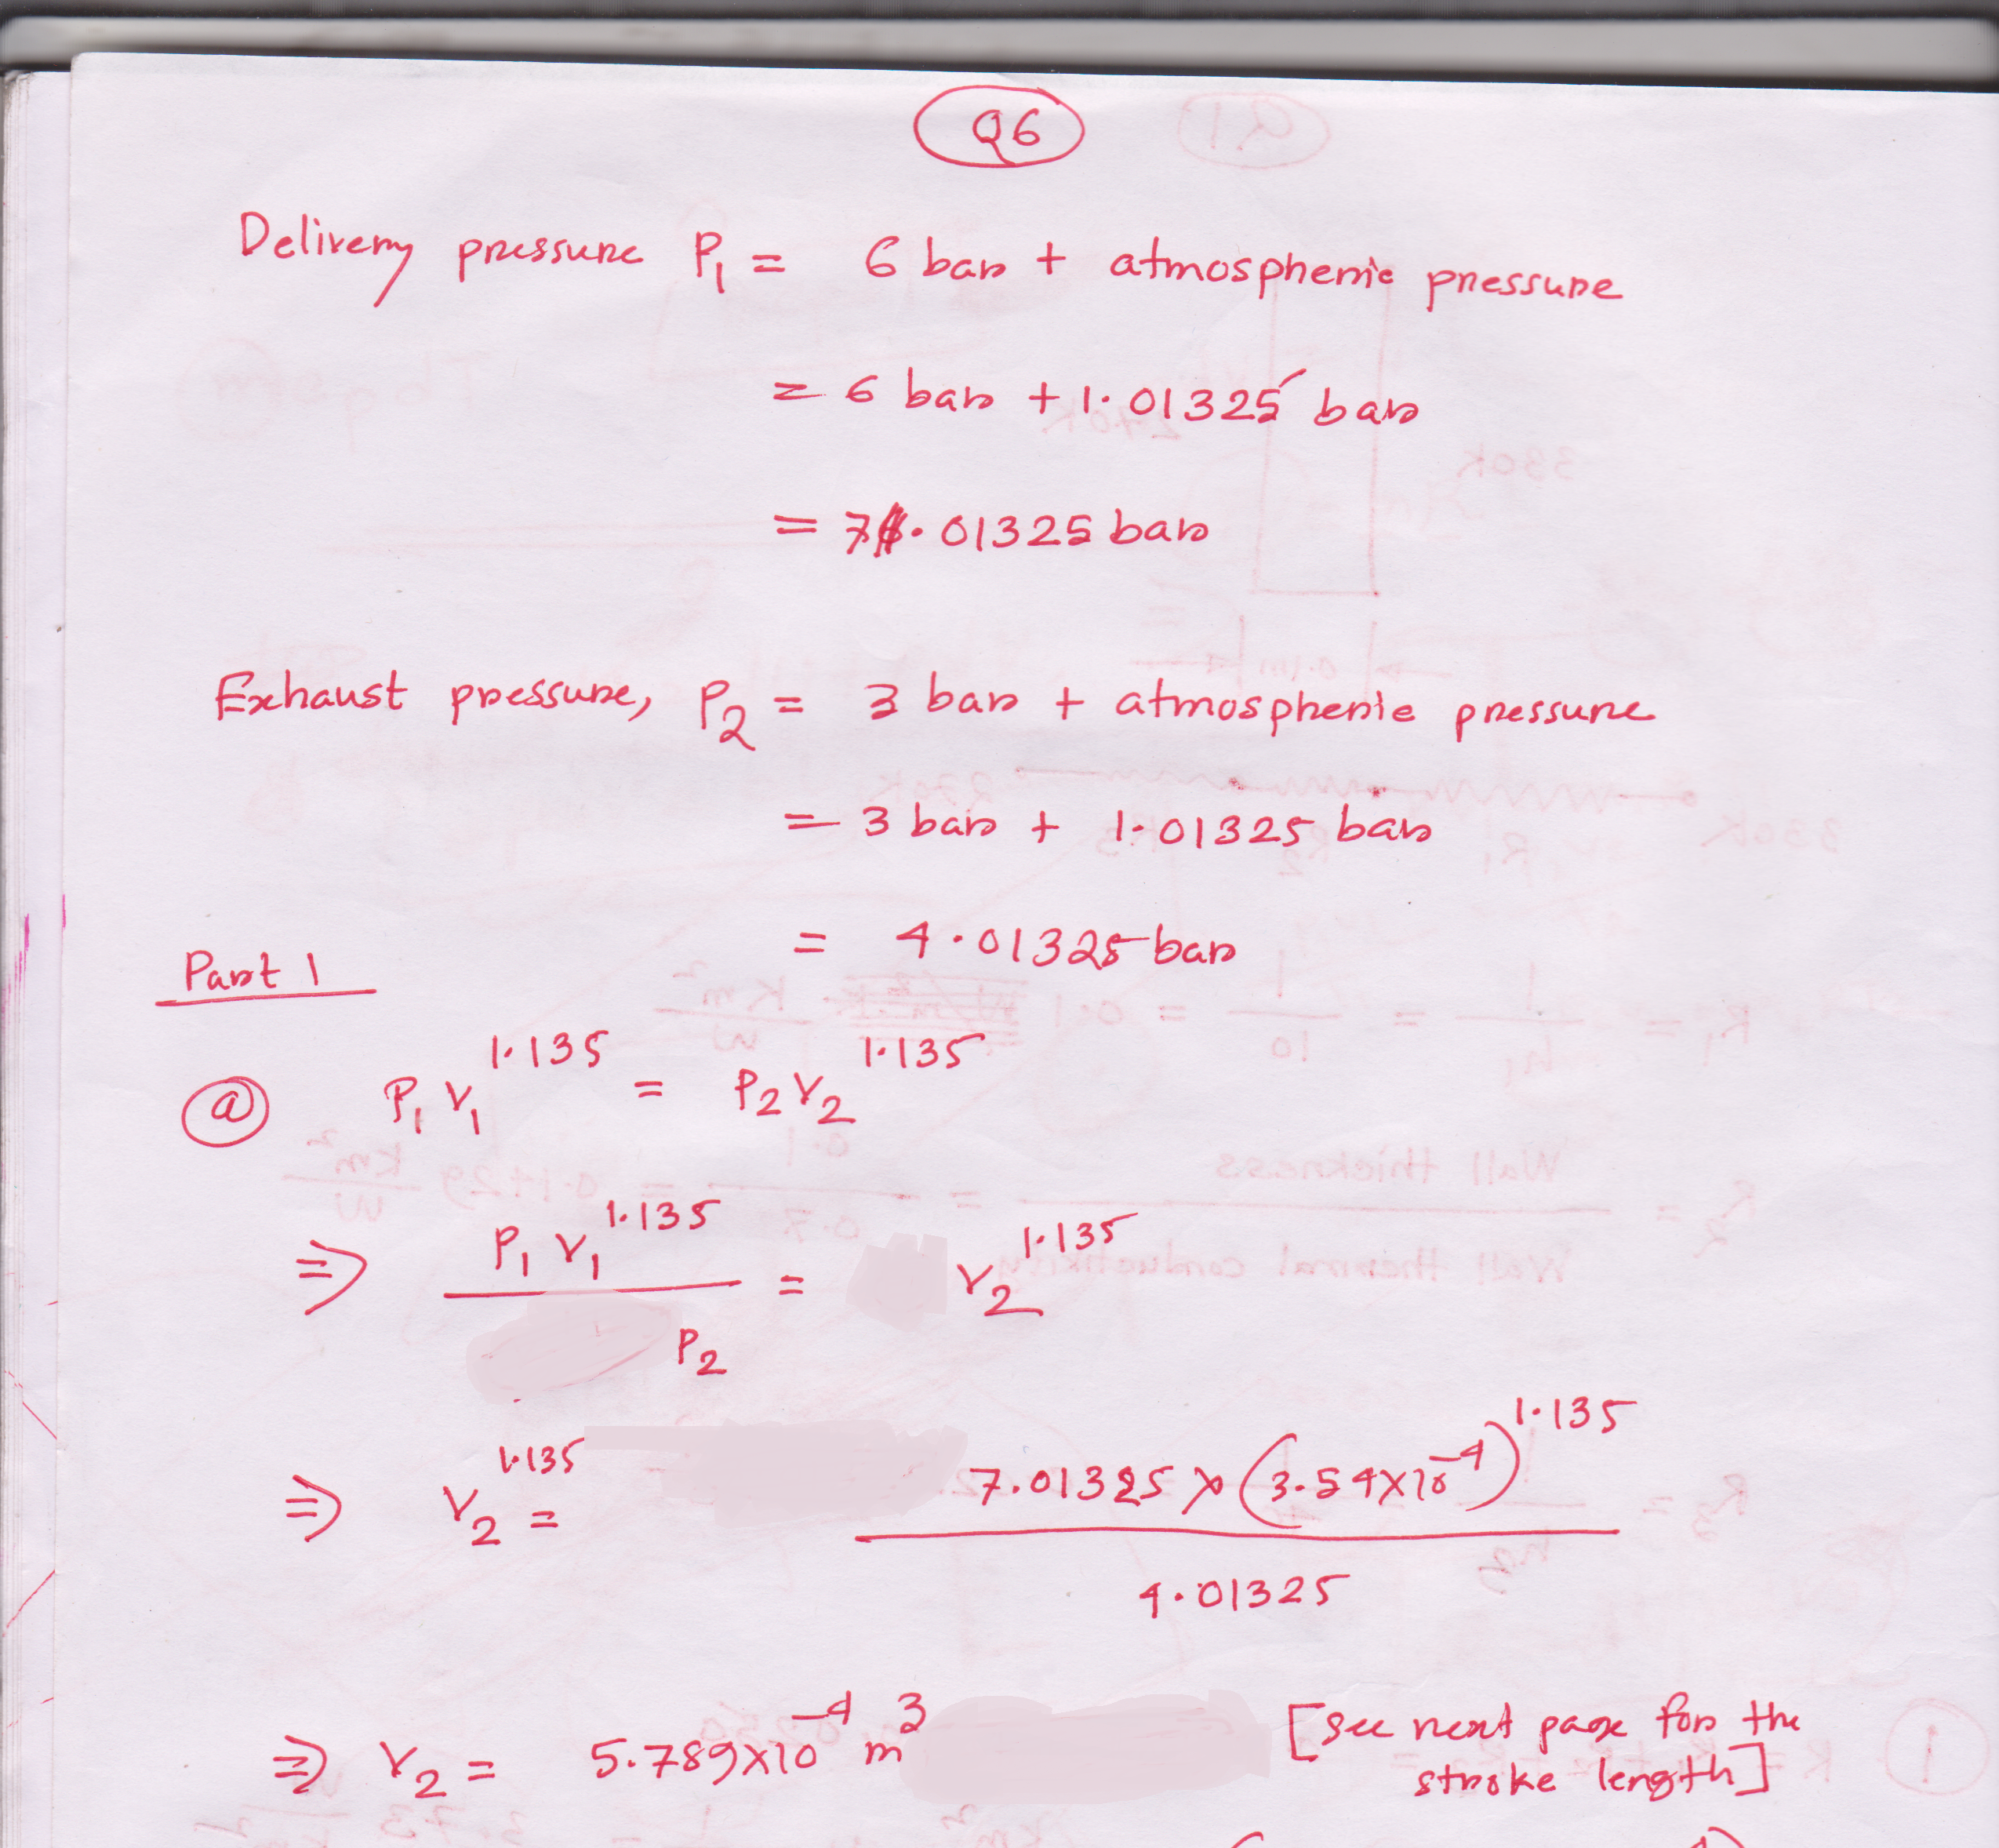 Q6
Delivery pressure P₁ = 6 bar + atmospheric pressure
= 6 bar + 1.01325 bar
= 7.01325 bar
Exhaust pressure, P₂ = 3 bar + atmospheric pressure
= 3 bar + 1.01325 bar
= 4.01325 bar
Part 1
(a) P₁ V₁^1.135 = P₂ V₂^1.135
⇒ P₁ V₁^1.135 / P₂ = V₂^1.135
⇒ V₂^1.135 = 7.01325 × (3.54×10^-4)^1.135 / 4.01325
⇒ V₂ = 5.789×10^-4 m^3 [see next page for the
stroke length]